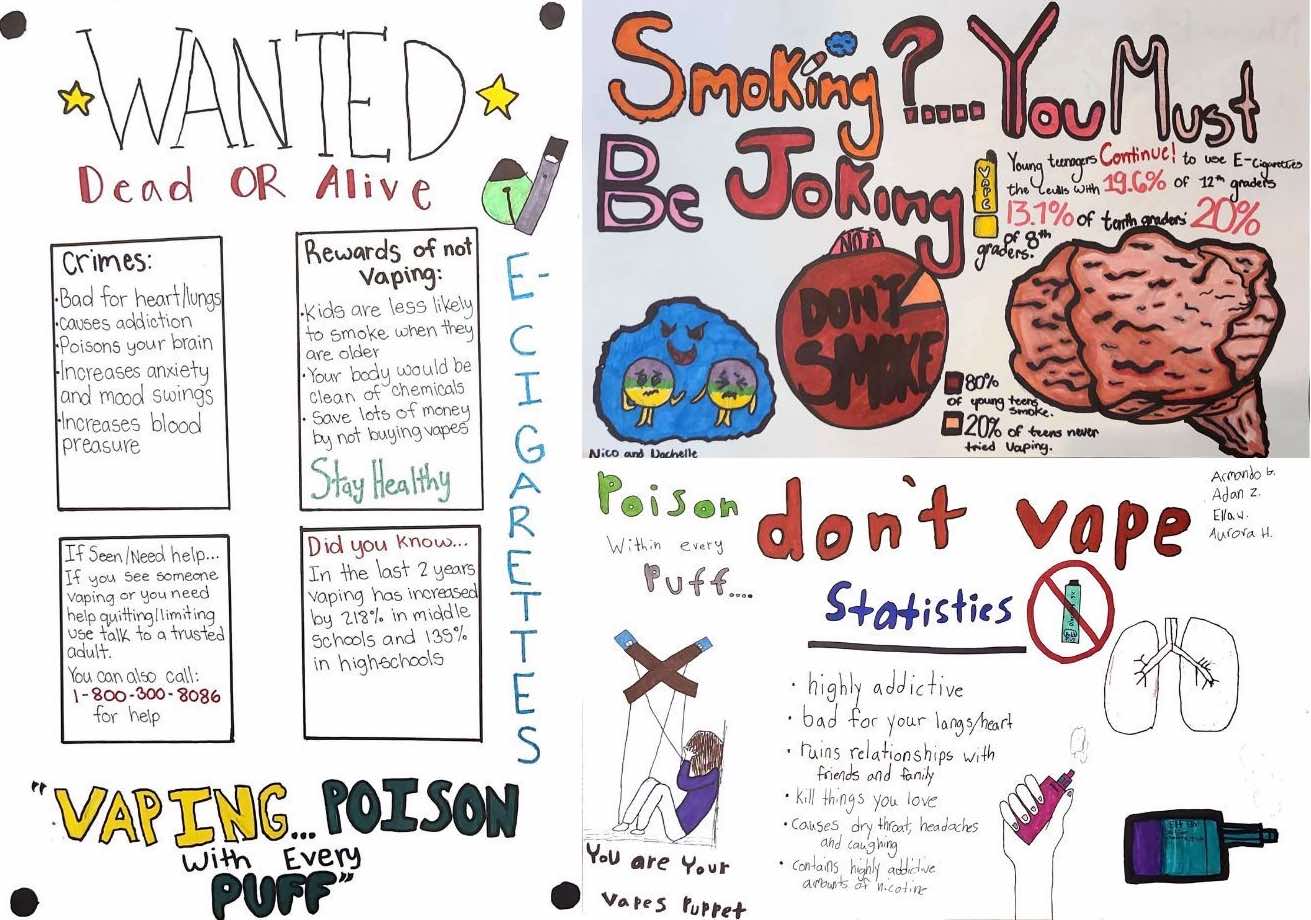 WANTED
Dead OR Alive
Crimes:
•Bad for heart/lungs
•causes addiction
•Poisons your brain
•Increases anxiety
and mood swings
•Increases blood
preasure
Rewards of not
Vaping:
•Kids are less likely
to smoke when they
are older
•Your body would be
clean of chemicals
• Save lots of money
by not buying vapes
Stay Healthy
If Seen/Need help...
If you see someone
vaping or you need
help quitting/limiting
use talk to a trusted
adult.
You can also call:
1-800-300-8086
for help
Did you know...
In the last 2 years
vaping has increased
by 218% in middle
schools and 135%
in high-schools
E-CIGARETTES
"VAPING... POISON
With Every
PUFF"
Smoking?..... You Must
Be Joking
VAPE
Young teenagers Continue! to use E-Cigarettes
the with 19.6% of 12th graders
13.1% of tenth graders 20%
of 8th
graders.
NO!
DON'T
SMOKE
80%
of young teens
smoke.
20% of teens never
tried Vaping.
Nico and
Poison
Within every
Puff....
don't vape
Armando G.
Adan Z.
Ella W.
Aurora H.
Statisties
• highly addictive
• bad for your langs/heart
• ruins relationships with
friends and family
• kill things you love
• causes dry throat, headaches
and caughing
• contains highly addictive
amounts of nicotine
You are Your
Vapes Puppet